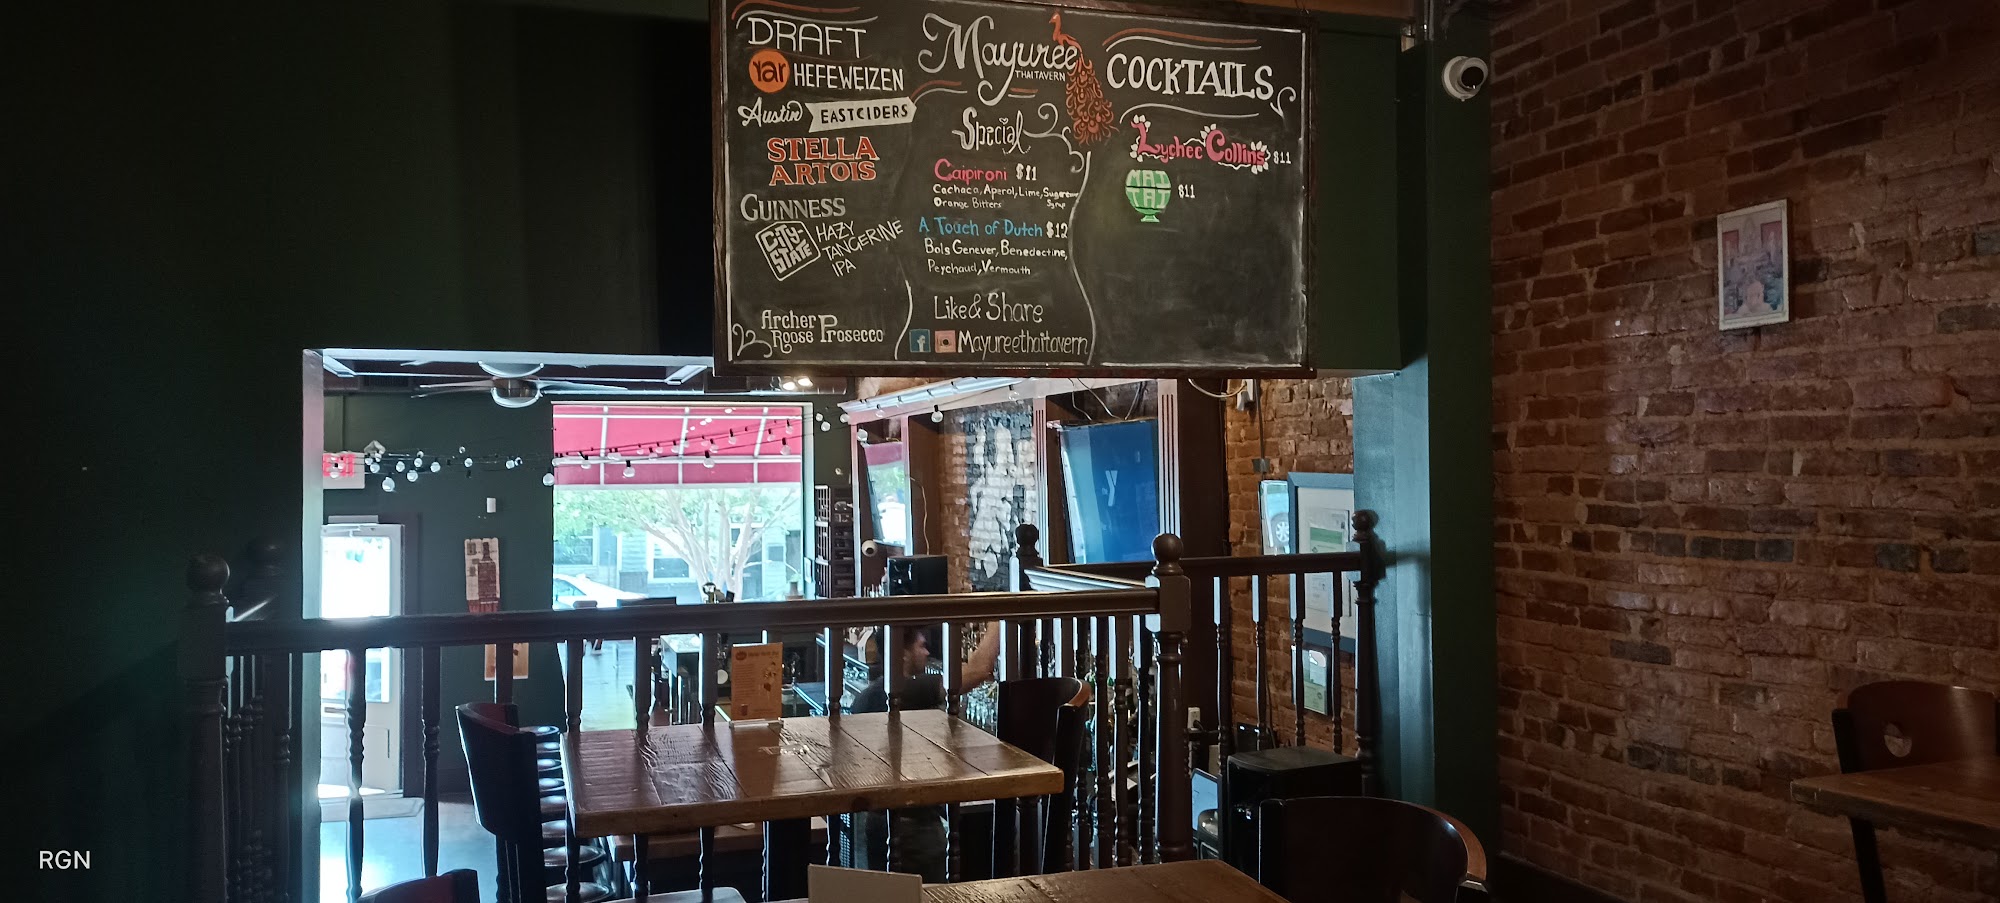 DRAFT
RAR HEFEWEIZEN
Austin EASTCIDERS
STELLA
ARTOIS
GUINNESS
CITY-
STATE
HAZY
TANGERINE
IPA
Archer
Roose Prosecco
Mayuree
THAI TAVERN
Special
Caipironi $11
Cachaca, Aperol, Lime, Sugarcane
Orange Bitters Syrup
A Touch of Dutch $12
Bols Genever, Benedectine,
Peychaud, Vermouth
Like & Share
f Mayureethaitavern
COCKTAILS
Lychee Collins $11
MAI
TAI $11
RGN